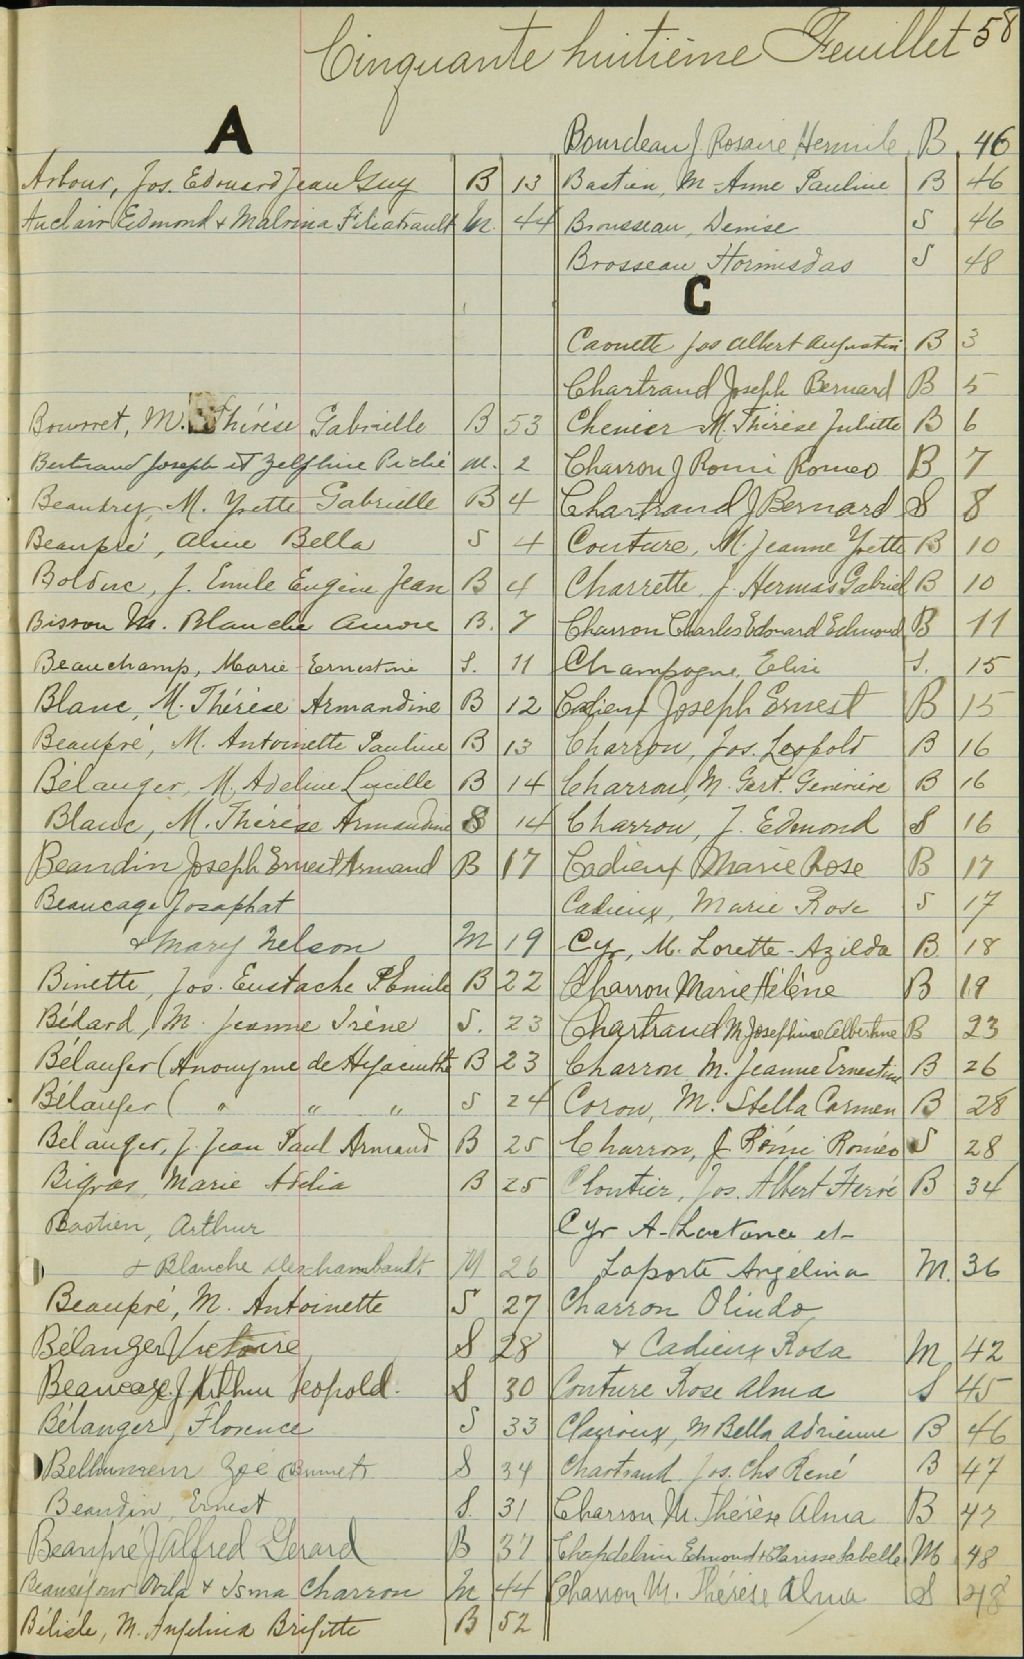 Cinquante huitième Feuillet 58
A
Arbour, Jos. Edouard Jean Guy B 13
Auclair Edmond & Malvina Filiatrault M. 44
Bourret, M. Thérèse Gabrielle B 53
Bertrand Joseph et Zelphine Piché M. 2
Beaudry, M. Yvette Gabrielle B 4
Beaupré, Aline Bella S 4
Bolduc, J. Emile Eugène Jean B 4
Bisson M. Blanche Aurore B. 7
Beauchamp, Marie Ernestine S. 11
Blanc, M. Thérèse Armandine B 12
Beaupré, M. Antoinette Pauline B 13
Bélanger, M. Adeline Lucille B 14
Blanc, M. Thérèse Armandine S 14
Beaudin Joseph Ernest Armand B 17
Beaucage Josaphat
& Mary Nelson M 19
Binette, Jos. Eustache P. Emile B 22
Bédard, M. Jeanne Irène S. 23
Bélanger (Anonyme de Hyacinthe B 23
Bélanger ( " " " S 24
Bélanger, J. Jean Paul Armand B 25
Bigras, Marie Adélia B 25
Bastien, Arthur
& Blanche Deschambault M 26
Beaupré, M. Antoinette S 27
Bélanger Victoire S 28
Beaucage J. Arthur Leopold. S 30
Bélanger, Florence S 33
Bellhumeur Zoé S 34
Beaudin, Ernest S. 31
Beaupré J Alfred Gerard B 37
Beauséjour Ovila & Isma Charron M 44
Bélisle, M. Angelina Brigitte B 52
Bourdeau J. Rosaire Hermile B. 46
Bastien, M-Anne Pauline B 46
Brousseau, Denise S 46
Brosseau Hormisdas S 48
C
Caouette Jos Albert Augustin B 3
Chartrand Joseph Bernard B 5
Chenier M. Thérèse Juliette B 6
Charron J Romi Romeo B 7
Chartrand J Bernard S 8
Couture, M. Jeanne Yvette B 10
Charrette J. Hermas Gabriel B 10
Charron Charles Edouard Edmond B 11
Champagne, Elise S. 15
Cadieux Joseph Ernest B 15
Charron, Jos. Leopold B 16
Charron, M. Gert. Geneviève B 16
Charron, J. Edmond S 16
Cadieux Marie Rose B 17
Cadieux, Marie Rose S 17
Cyr, M. Lorette-Azilda B 18
Charron Marie Hélène B 19
Chartrand M Josephine Albertine B 23
Charron M. Jeanne Ernestine B 26
Coron, M. Stella Carmen B 28
Charron, J Rémi Roméo S 28
Cloutier, Jos. Albert Hervé B 34
Cyr A-Loctance et-
Laporte Angélina M. 36
Charron Olindo
& Cadieux Rosa M 42
Couture Rose Alma S 45
Clairoux, M Bella Adrienne B 46
Chartrand Jos. Chs René B 47
Charron M. Thérèse Alma B 47
Chapdelain Edmond & Clarisse Labelle M 48
Charron M. Thérèse Alma S 48